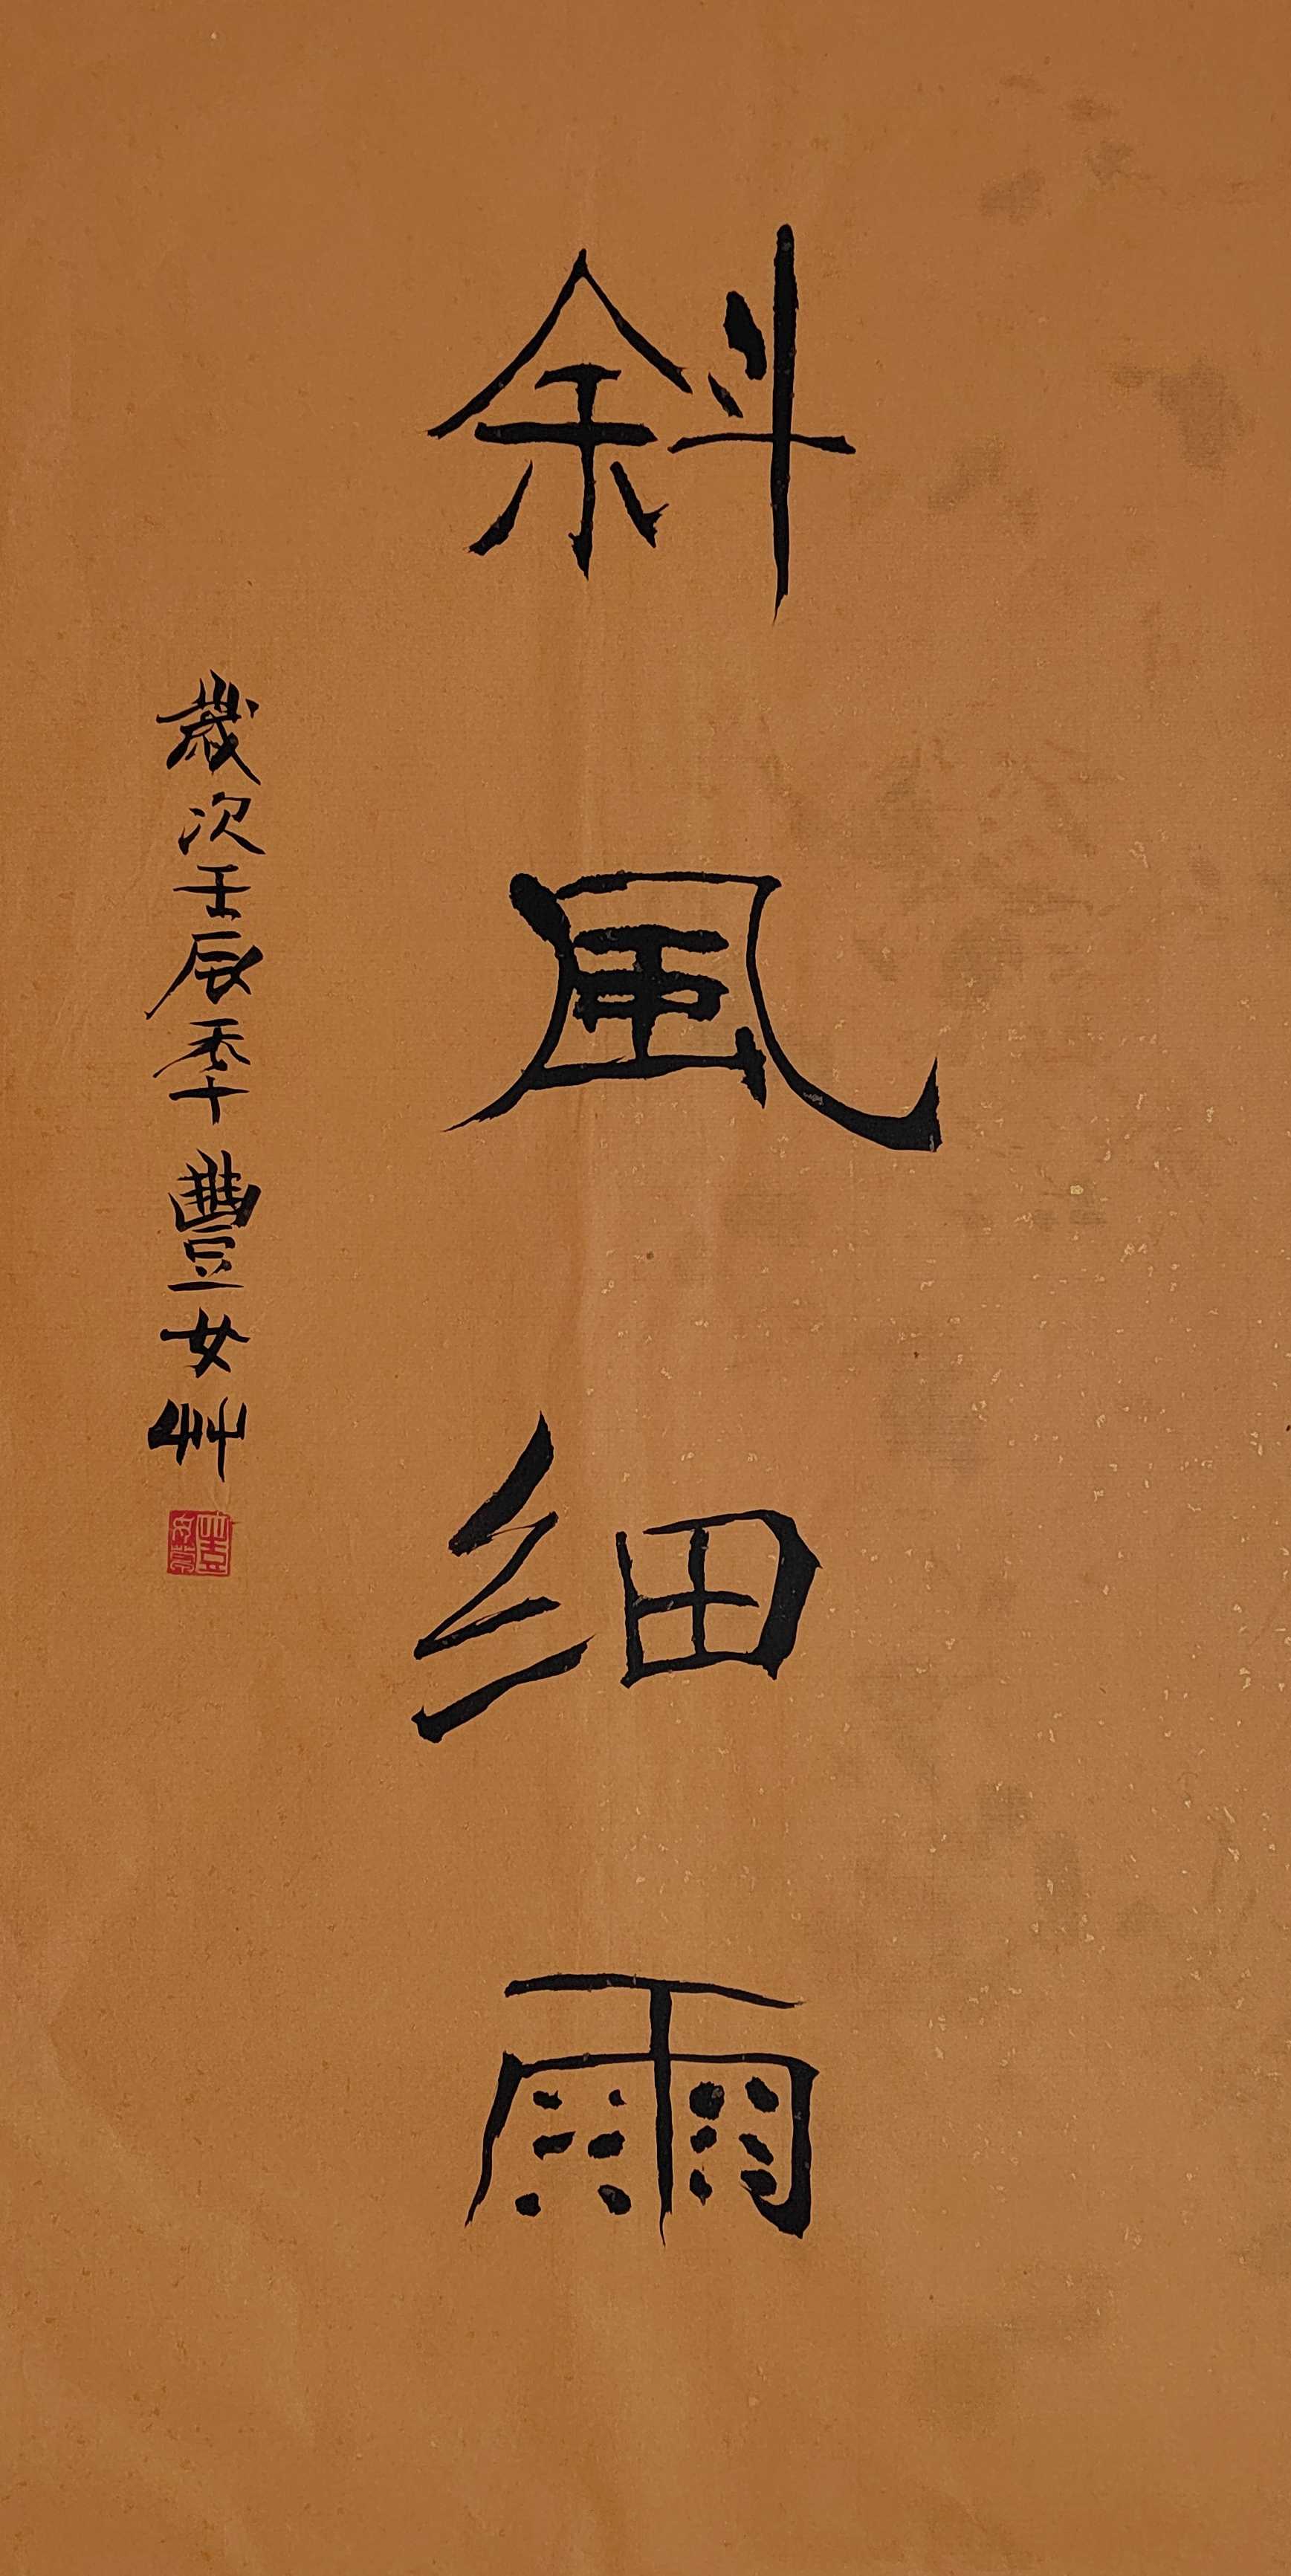 斜風細雨
歲次壬辰季豐女艸